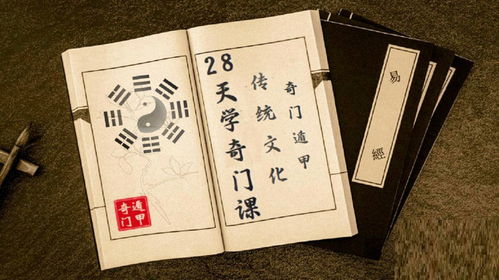 28天学奇门课
传统文化
奇门遁甲
遁甲
奇门
易經